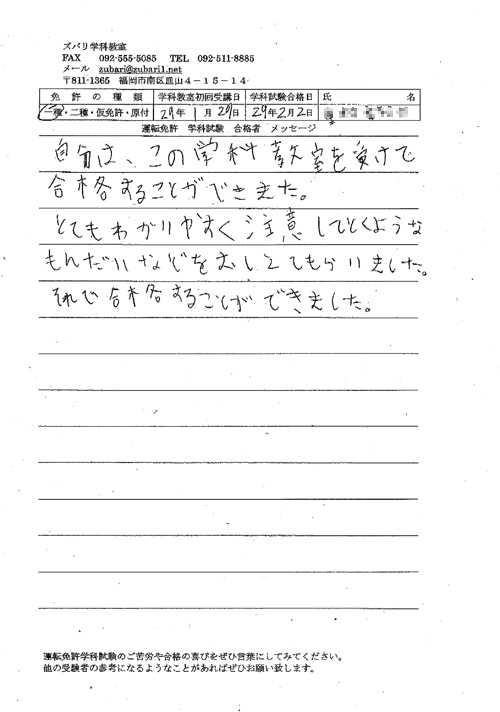 ズバリ学科教室
FAX 092-555-5085 TEL 092-511-8885
メール zubari@zubari1.net
〒811-1365 福岡市南区皿山4-15-14
免許の種類 学科教室初回受講日 学科試験合格日 氏名
一種・二種・仮免許・原付 29年1月29日 29年2月2日
運転免許 学科試験 合格者 メッセージ
自分は、この学科教室を受けて
合格することができました。
とてもわかりやすく注意してとくような
もんだいなどをおしえてもらいました。
それで合格することができました。
運転免許学科試験のご苦労や合格の喜びをぜひ言葉にしてみてください。
他の受験者の参考になるようなことがあればぜひお願い致します。